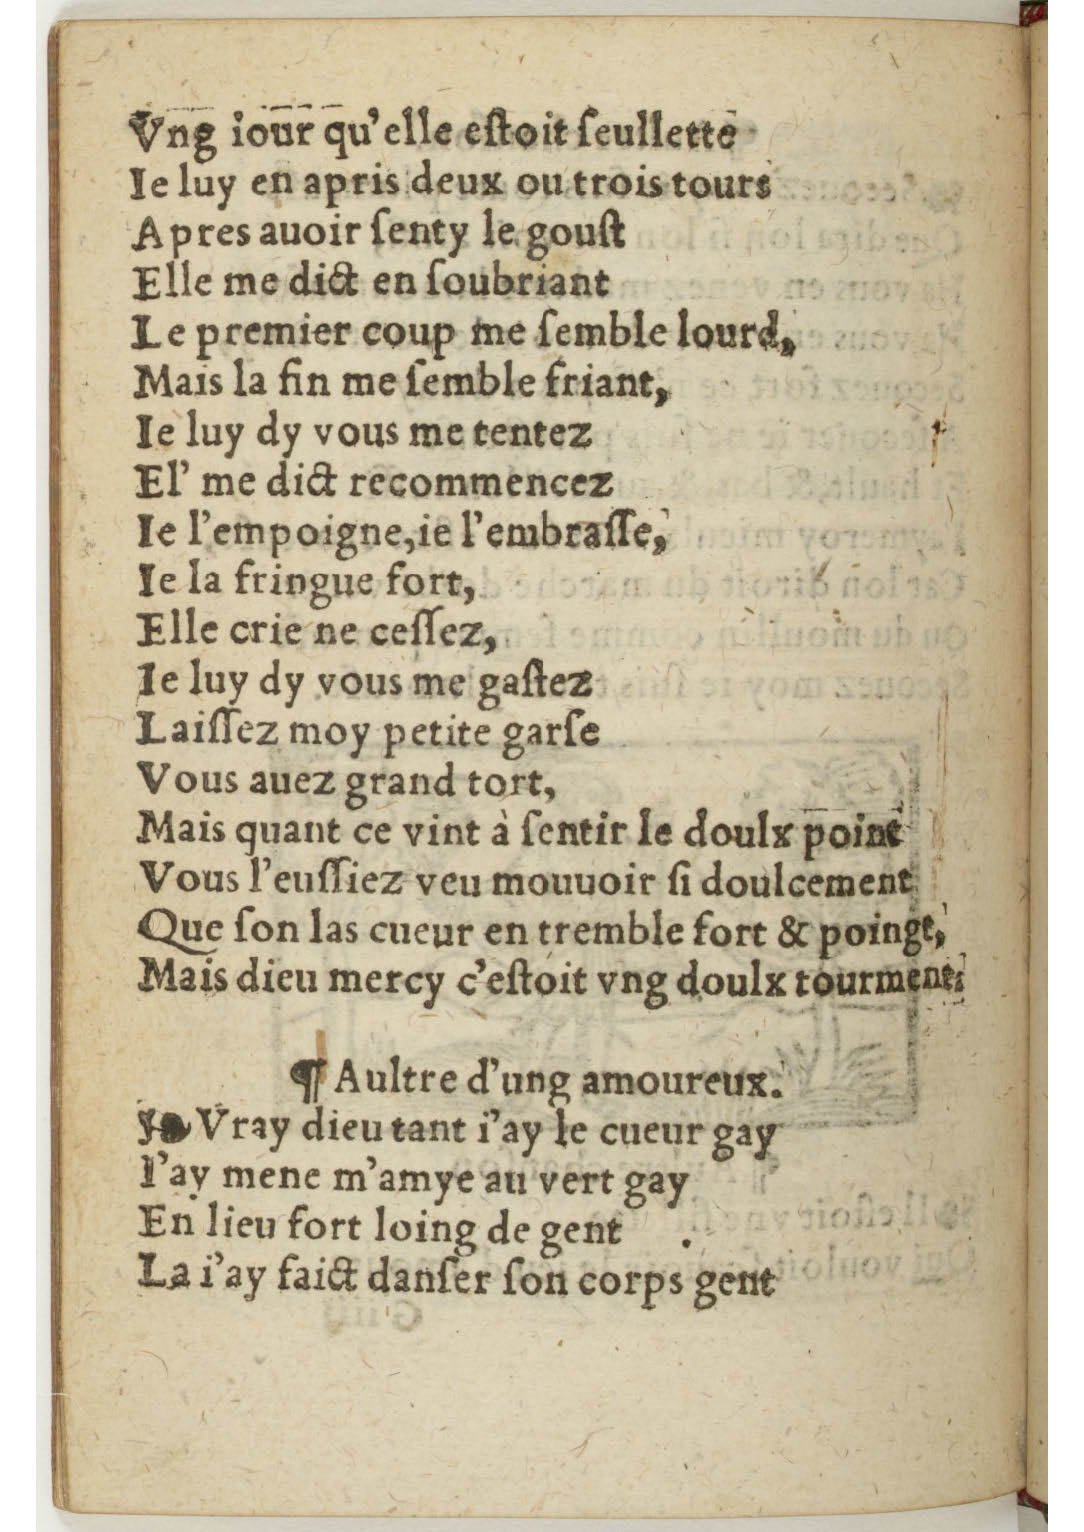 Vng iour qu'elle eſtoit ſeullette
Ie luy en apris deux ou trois tours
Apres auoir ſenty le gouſt
Elle me dict en ſoubriant
Le premier coup me ſemble lourd,
Mais la fin me ſemble friant,
Ie luy dy vous me tentez
El' me dict recommencez
Ie l'empoigne,ie l'embraſſe,
Ie la fringue fort,
Elle crie ne ceſſez,
Ie luy dy vous me gaſtez
Laiſſez moy petite garſe
Vous auez grand tort,
Mais quant ce vint à ſentir le doulx point
Vous l'euſſiez veu mouuoir ſi doulcement
Que ſon las cueur en tremble fort & poingt,
Mais dieu mercy c'eſtoit vng doulx tourment.
¶ Aultre d'ung amoureux.
❧ Vray dieu tant i'ay le cueur gay
I'ay mene m'amye au vert gay
En lieu fort loing de gent .
La i'ay faict danſer ſon corps gent